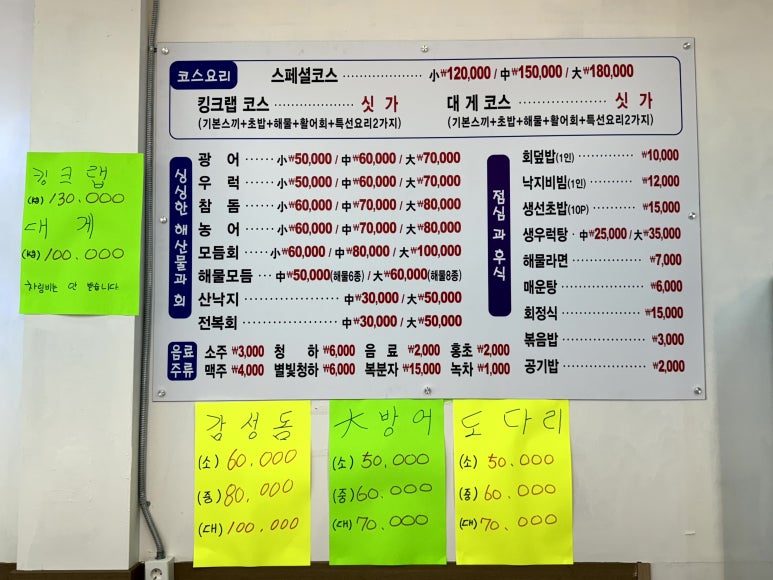 코스요리
스페셜코스 ················ 小₩120,000 / 中₩150,000 / 大₩180,000
킹크랩 코스 ················ 싯 가
(기본스끼+초밥+해물+활어회+특선요리2가지)
대 게 코스 ················ 싯 가
(기본스끼+초밥+해물+활어회+특선요리2가지)
싱싱한 해산물과 회
광 어 ······ 小₩50,000 / 中₩60,000 / 大₩70,000
우 럭 ······ 小₩50,000 / 中₩60,000 / 大₩70,000
참 돔 ······ 小₩60,000 / 中₩70,000 / 大₩80,000
농 어 ······ 小₩60,000 / 中₩70,000 / 大₩80,000
모듬회 ····· 小₩60,000 / 中₩80,000 / 大₩100,000
해물모듬 ·· 中₩50,000(해물6종) / 大₩60,000(해물8종)
산낙지 ················ 中₩30,000 / 大₩50,000
전복회 ················ 中₩30,000 / 大₩50,000
점심과 후식
회덮밥(1인) ············ ₩10,000
낙지비빔(1인) ·········· ₩12,000
생선초밥(10P) ········· ₩15,000
생우럭탕 · 中₩25,000 / 大₩35,000
해물라면 ············ ₩7,000
매운탕 ············ ₩6,000
회정식 ············ ₩15,000
볶음밥 ············ ₩3,000
공기밥 ············ ₩2,000
음료
주류
소주 ₩3,000 청 하 ₩6,000 음 료 ₩2,000 홍초 ₩2,000
맥주 ₩4,000 별빛청하 ₩6,000 복분자 ₩15,000 녹차 ₩1,000
킹크랩
(kg) 130.000
대 게
(kg) 100.000
차림비는 안 받습니다
감성돔
(소) 60.000
(중) 80.000
(대) 100.000
大방어
(소) 50.000
(중) 60.000
(대) 70.000
도다리
(소) 50.000
(중) 60.000
(대) 70.000